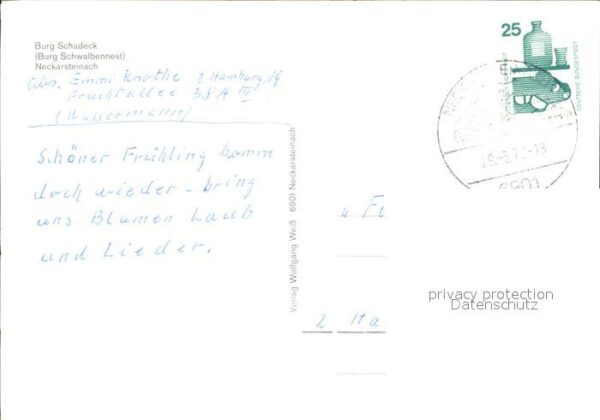 Burg Schadeck
(Burg Schwalbennest)
Neckarsteinach
Abs. Emmi Knothe 2 Hamburg 19
Fruchtallee 38A III
(Wassermann)
Schöner Frühling komm
doch wieder - bring
uns Blumen Laub
und Lieder.
Verlag Wolfgang Weiß 6901 Neckarsteinach
25
DEUTSCHE BUNDESPOST
6901
u. F
2 Ha
privacy protection
Datenschutz